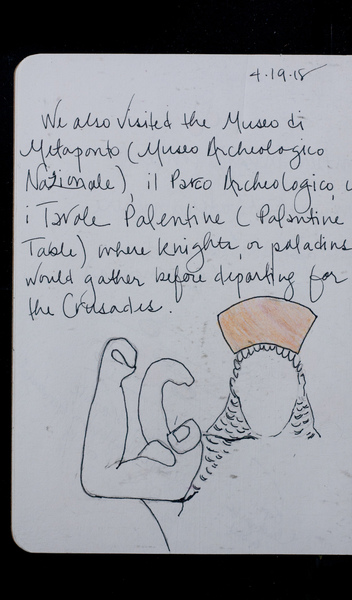 4.19.18
We also visited the Museo di
Metaponto (Museo Archeologico
Nazionale), il Parco Archeologico,
i Tavole Palentine (Palantine
Table) where knights, or paladins
would gather before departing for
the Crusades.